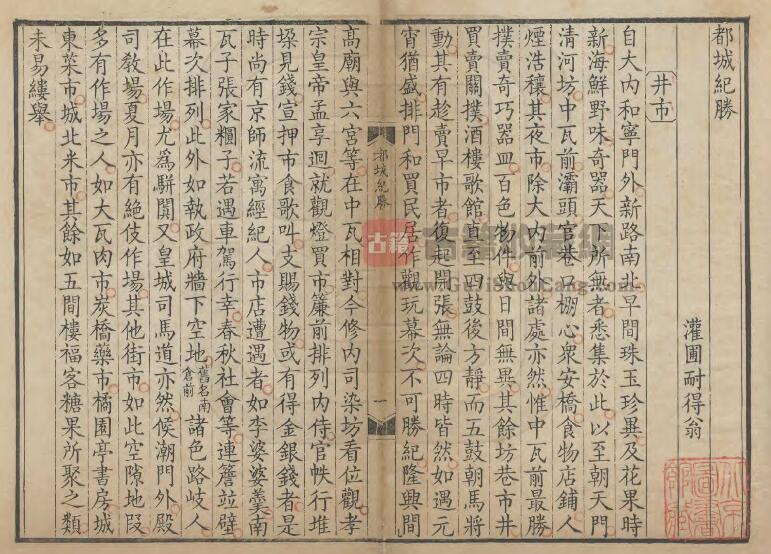 都城紀勝
灌圃耐得翁
井市
自大內和寧門外新路南北早間珠玉珍異及花果時
新海鮮野味奇器天下所無者悉集於此以至朝天門
清河坊中瓦前灞頭官巷口棚心衆安橋食物店鋪人
煙浩穰其夜市除大內前外諸處亦然惟中瓦前最勝
撲賣奇巧器皿百色物件與日間無異其餘坊巷市井
買賣關撲酒樓歌館直至四鼓後方靜而五鼓朝馬將
動其有趁賣早市者復起開張無論四時皆然如遇元
宵猶盛排門和買民居作觀玩幕次不可勝紀隆興間
都城紀勝
一
高廟與六宮等在中瓦相對今修內司染坊看位觀孝
宗皇帝孟享迴就觀燈買市簾前排列內侍官帙行堆
垜見錢宣押市食歌叫支賜錢物或有得金銀錢者是
時尚有京師流寓經紀人市店遭遇者如李婆婆羹南
瓦子張家糰子若遇車駕行幸春秋社會等連簷並壁
幕次排列此外如執政府牆下空地舊名南倉前諸色路岐人
在此作場尤爲駢闐又皇城司馬道亦然候潮門外殿
司教場夏月亦有絕伎作場其他街市如此空隙地段
多有作場之人如大瓦肉市炭橋藥市橘園亭書房城
東菜市城北米市其餘如五間樓福客糖果所聚之類
未易縷舉
古籍
www.GuJiShouCang.com